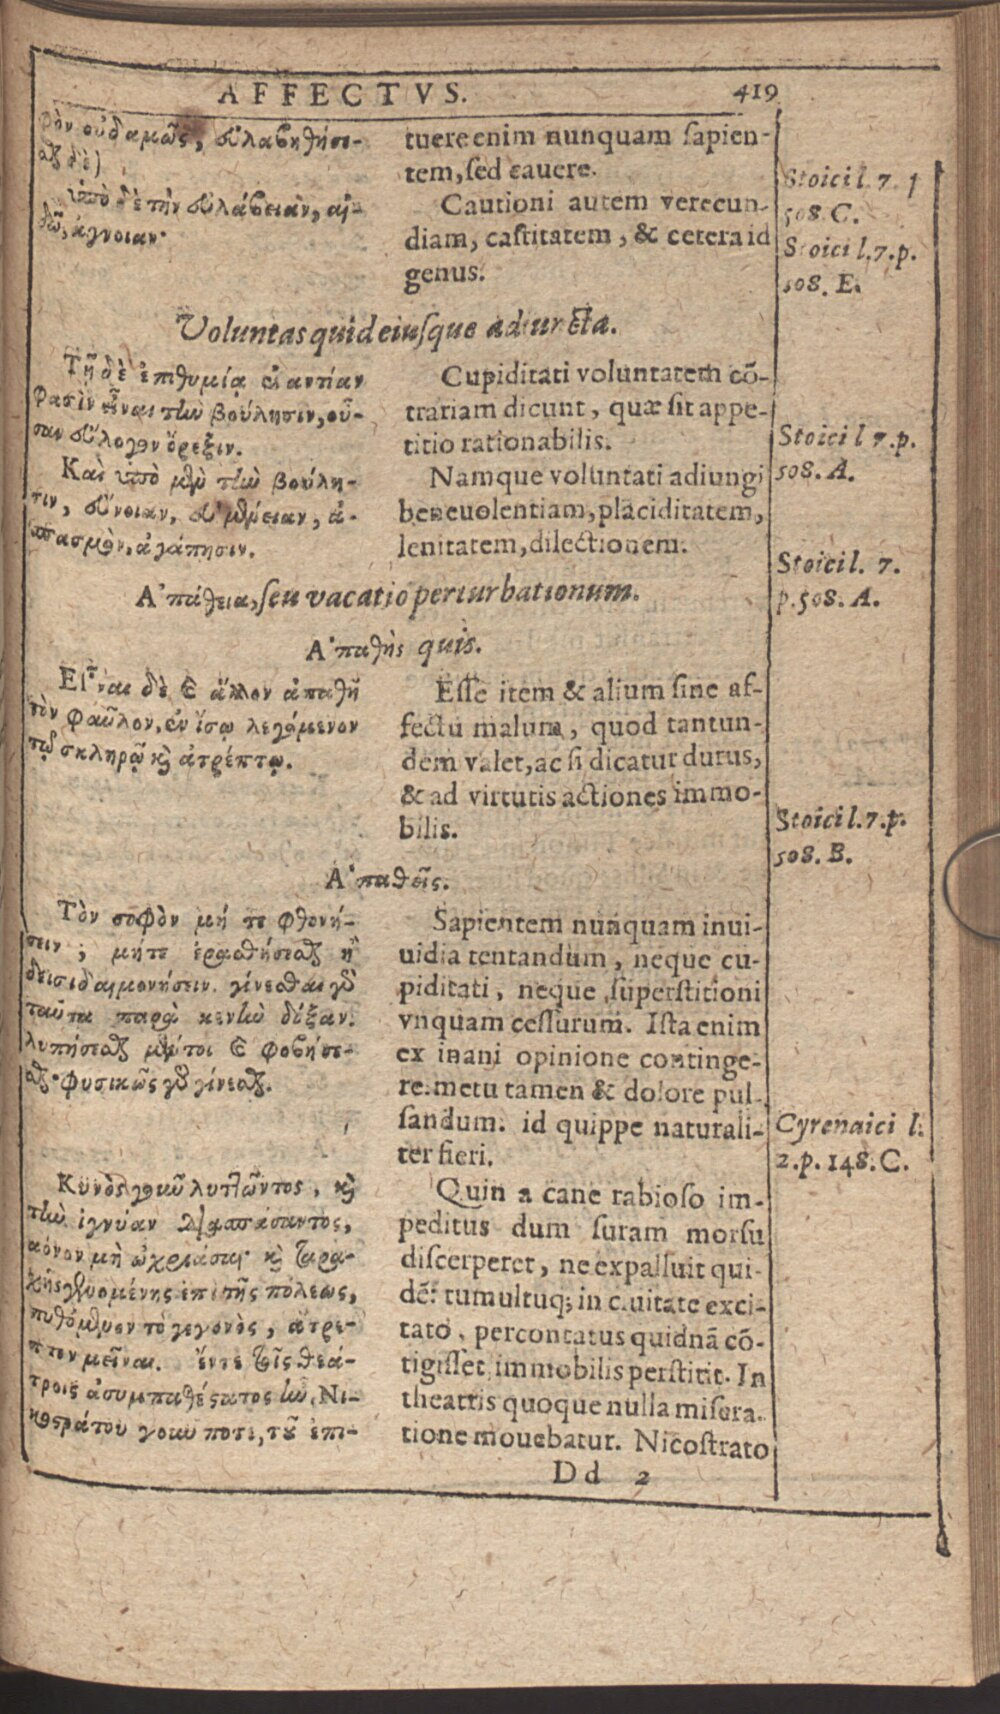 AFFECTVS. 419
φὸν οὐδαμῶς, εὐλαβηθήσε-
σθαι δὲ)
ὑπὸ δὲ τὴν εὐλάβειαν, αἰ-
δῶ, ἁγνοιαν·
tuere enim nunquam sapien-
tem, sed cauere.
Cautioni autem verecun-
diam, castitatem, & cetera id
genus.
Stoici l. 7. p
508. C.
Stoici l. 7. p.
508. E.
Voluntas quid eiusque adiuncta.
Τῇ δὲ ἐπιθυμίᾳ ἐναντίαν
φασὶν εἶναι τὴν βούλησιν, οὖ-
σαν εὔλογον ὄρεξιν.
Καὶ ὑπὸ μὲν τὴν βούλη-
σιν, εὔνοιαν, εὐμένειαν, ἀ-
σπασμὸν, ἀγάπησιν.
Cupiditati voluntatem cō-
trariam dicunt, quæ sit appe-
titio rationabilis.
Namque voluntati adiungi
beneuolentiam, placiditatem,
lenitatem, dilectionem.
Stoici l 7. p.
508. A.
Α᾿πάθεια, seu vacatio perturbationum.
Stoici l. 7.
p. 508. A.
Α᾿παθὴς quis.
Εἶναι δὲ καὶ ἄλλον ἀπαθῆ
τὸν φαῦλον, ἐν ἴσῳ λεγόμενον
τῷ σκληρῷ καὶ ἀτρέπτῳ.
Esse item & alium sine af-
fectu malum, quod tantun-
dem valet, ac si dicatur durus,
& ad virtutis actiones immo-
bilis.
Stoici l. 7. p.
508. B.
Α᾿παθεῖς.
Τὸν σοφὸν μή τε φθονή-
σειν ; μήτε ἐρασθήσεσθαι ἢ
δεισιδαιμονήσειν. γίνεσθαι γὸ
ταῦτα παρὰ κενὴν δόξαν.
λυπήσεσθαι μέντοι καὶ φοβήσε-
σθαι· φυσικῶς γὸ γίνεσθαι.
Sapientem nunquam inui-
uidia tentandum, neque cu-
piditati, neque superstitioni
vnquam cessurum. Ista enim
ex inani opinione continge-
re. metu tamen & dolore pul-
sandum. id quippe naturali-
ter fieri.
Cyrenaici l.
2. p. 148. C.
Κυνὸς γοῦν λυττῶντος, καὶ
τὴν ἰγνύαν διασπάσαντος,
μόνον μὴ ὠχριάσαι· καὶ ταρα-
χῆς γενομένης ἐπὶ τῆς πόλεως,
πυθόμενον τὸ γεγονὸς, ἄτρε-
πτον μεῖναι. ἔν τε τοῖς θεά-
τροις ἀσυμπαθέστατος ἦν. Νι-
κοστράτου γοῦν ποτε, τοῦ ἐπι-
Quin a cane rabioso im-
peditus dum suram morsu
discerperet, ne expalluit qui-
dē: tumultuq; in ciuitate exci-
tato, percontatus quidnā cō-
tigisset, immobilis perstitit. In
theatris quoque nulla misera-
tione mouebatur. Nicostrato
Dd 2